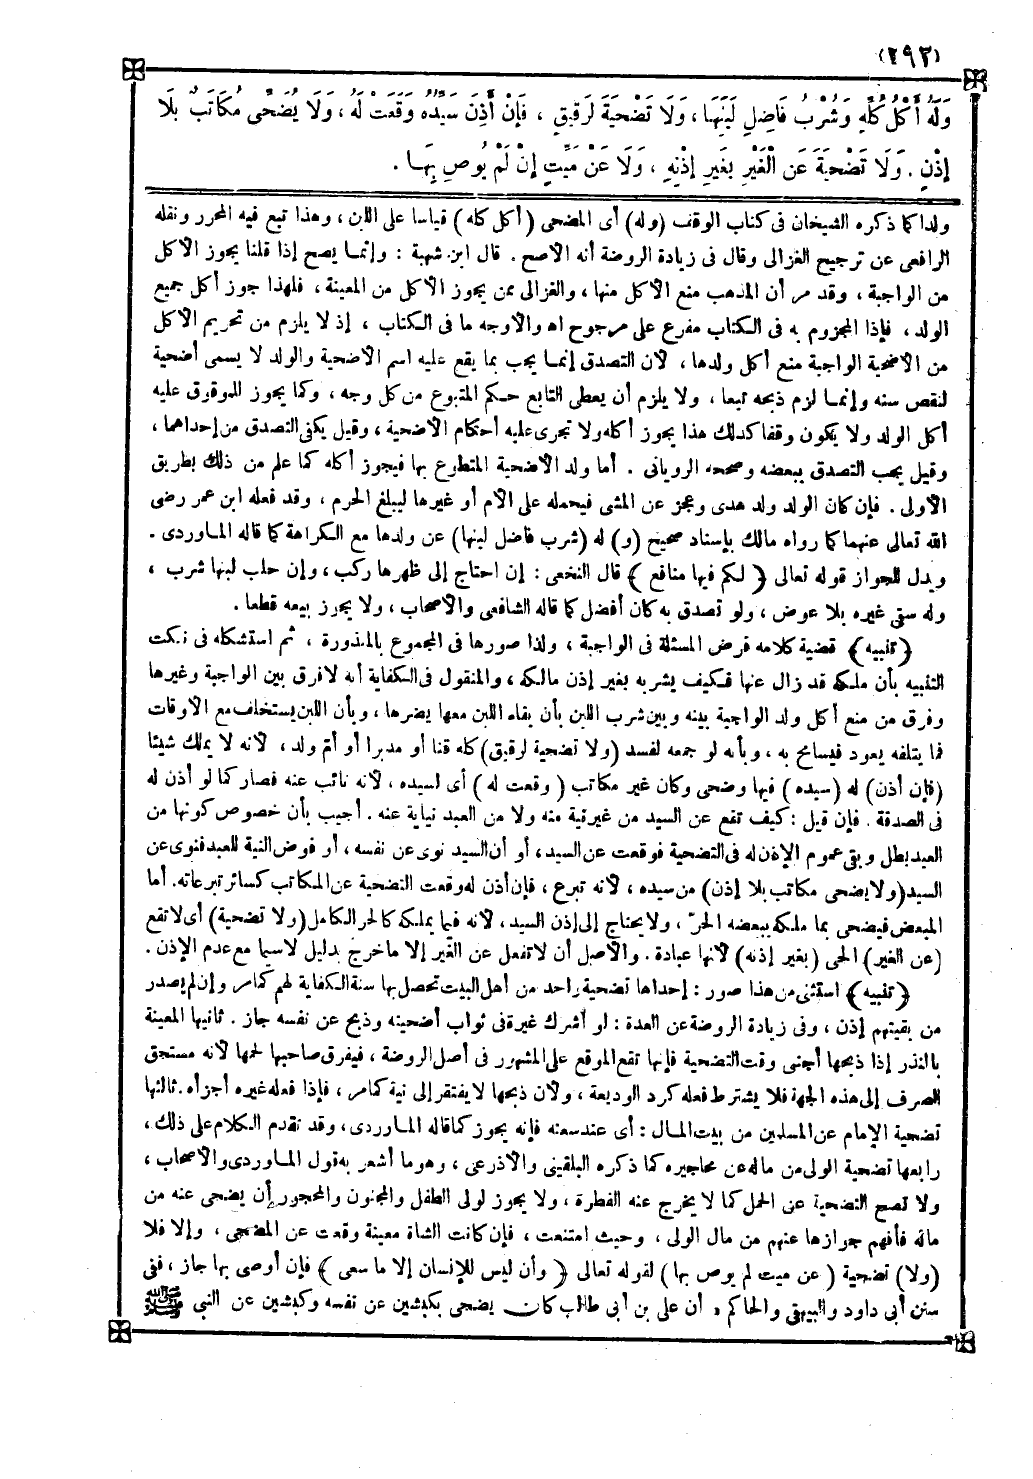 (٢٩٢)
وَلَهُ أَكْلُ كُلِّهِ وَشُرْبُ فَاضِلِ لَبَنِهَا، وَلَا تَضْحِيَةَ لِرَقِيقٍ ، فَإِنْ أَذِنَ سَيِّدُهُ وَقَعَتْ لَهُ، وَلَا يُضَحِّى مُكَاتَبٌ بِلَا
إِذْنٍ . وَلَا تَضْحِيَةَ عَنِ الْغَيْرِ بِغَيْرِ إِذْنِهِ ، وَلَا عَنْ مَيِّتٍ إِنْ لَمْ يُوصِ بِهَا .
ولدا كما ذكره الشيخان فى كتاب الوقف (وله) أى المضحى (أكل كله) قياسا على اللبن ، وهذا تبع فيه المحرر ونقله
الرافعى عن ترجيح الغزالى وقال فى زيادة الروضة أنه الأصح . قال ابن شهبة : وإنما يصح إذا قلنا يجوز الأكل
من الواجبة ، وقد مر أن المذهب منع الأكل منها ، والغزالى ممن يجوز الأكل من المعينة ، فلهذا جوز أكل جميع
الولد ، فإذا المجزوم به فى الكتاب مفرع على مرجوح اه والأوجه ما فى الكتاب ، إذ لا يلزم من تحريم الأكل
من الأضحية الواجبة منع أكل ولدها ، لأن التصدق إنما يجب بما يقع عليه اسم الأضحية والولد لا يسمى أضحية
لنقص سنه وإنما لزم ذبحه تبعا ، ولا يلزم أن يعطى التابع حكم المتبوع من كل وجه ، وكما يجوز للموقوف عليه
أكل الولد ولا يكون وقفا كذلك هذا يجوز أكله ولا تجرى عليه أحكام الأضحية ، وقيل يكفى التصدق من إحداهما ،
وقيل يجب التصدق ببعضه وصححه الرويانى . أما ولد الأضحية المتطوع بها فيجوز أكله كما علم من ذلك بطريق
الأولى . فإن كان الولد ولد هدى وعجز عن المشى فيحمله على الأم أو غيرها ليبلغ الحرم ، وقد فعله ابن عمر رضى
الله تعالى عنهما كما رواه مالك بإسناد صحيح (و) له (شرب فاضل لبنها) عن ولدها مع الكراهة كما قاله الماوردى .
ويدل للجواز قوله تعالى ﴿ لكم فيها منافع ﴾ قال النخعى : إن احتاج إلى ظهرها ركب ، وإن حلب لبنها شرب ،
وله سقى غيره بلا عوض ، ولو تصدق به كان أفضل كما قاله الشافعى والأصحاب ، ولا يجوز بيعه قطعا .
﴿تنبيه﴾ قضية كلامه فرض المسئلة فى الواجبة ، ولذا صورها فى المجموع بالمنذورة ، ثم استشكله فى نكت
التنبيه بأن ملكه قد زال عنها فكيف يشربه بغير إذن مالكه ، والمنقول فى الكفاية أنه لا فرق بين الواجبة وغيرها
وفرق من منع أكل ولد الواجبة بينه وبين شرب اللبن بأن بقاء اللبن معها يضرها ، وبأن اللبن يستخلف مع الأوقات
فما يتلفه يعود فيسامح به ، وبأنه لو جمعه لفسد (ولا تضحية لرقيق) كله قنا أو مدبرا أو أم ولد ، لأنه لا يملك شيئا
(فإن أذن) له (سيده) فيها وضحى وكان غير مكاتب (وقعت له) أى لسيده ، لأنه نائب عنه فصار كما لو أذن له
فى الصدقة . فإن قيل : كيف تقع عن السيد من غير نية منه ولا من العبد نيابة عنه . أجيب بأن خصوص كونها من
العبد بطل وبقى عموم الإذن له فى التضحية فوقعت عن السيد ، أو أن السيد نوى عن نفسه ، أو فوض النية للعبد فنوى عن
السيد (ولا يضحى مكاتب بلا إذن) من سيده ، لأنه تبرع ، فإن أذن له وقعت التضحية عن المكاتب كسائر تبرعاته. أما
المبعض فيضحى بما ملكه ببعضه الحرّ ، ولا يحتاج إلى إذن السيد ، لأنه فيما يملكه كالحر الكامل (ولا تضحية) أى لا تقع
(عن الغير) الحى (بغير إذنه) لأنها عبادة . والأصل أن لا تفعل عن الغير إلا ما خرج بدليل لا سيما مع عدم الإذن .
﴿تنبيه﴾ استثنى من هذا صور : إحداها تضحية واحد من أهل البيت تحصل بها سنة الكفاية لهم كما مر وإن لم يصدر
من بقيتهم إذن ، وفى زيادة الروضة عن العدة : لو أشرك غيره فى ثواب أضحيته وذبح عن نفسه جاز . ثانيها المعينة
بالنذر إذا ذبحها أجنبى وقت التضحية فإنها تقع الموقع على المشهور فى أصل الروضة ، فيفرق صاحبها لحمها لأنه مستحق
الصرف إلى هذه الجهة فلا يشترط فعله كرد الوديعة ، ولأن ذبحها لا يفتقر إلى نية كما مر ، فإذا فعله غيره أجزأه . ثالثها
تضحية الإمام عن المسلمين من بيت المال : أى عند سعته فإنه يجوز كما قاله الماوردى ، وقد تقدم الكلام على ذلك ،
رابعها تضحية الولى من ماله عن محاجيره كما ذكره البلقينى والأذرعى ، وهو ما أشعر به قول الماوردى والأصحاب ،
ولا تصح التضحية عن الحمل كما لا يخرج عنه الفطرة ، ولا يجوز لولى الطفل والمجنون والمحجور أن يضحى عنه من
ماله فأفهم جوازها عنهم من مال الولى ، وحيث امتنعت ، فإن كانت الشاة معينة وقعت عن المضحى ، وإلا فلا
(ولا) تضحية (عن ميت لم يوص بها) لقوله تعالى ﴿ وأن ليس للإنسان إلا ما سعى ﴾ فإن أوصى بها جاز ، ففى
سنن أبى داود والبيهقى والحاكم « أن على بن أبى طالب كان يضحى بكبشين عن نفسه وكبشين عن النبى ﷺ